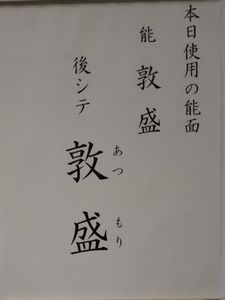 本日使用の能面
能 敦盛
後シテ 敦盛
あつ もり